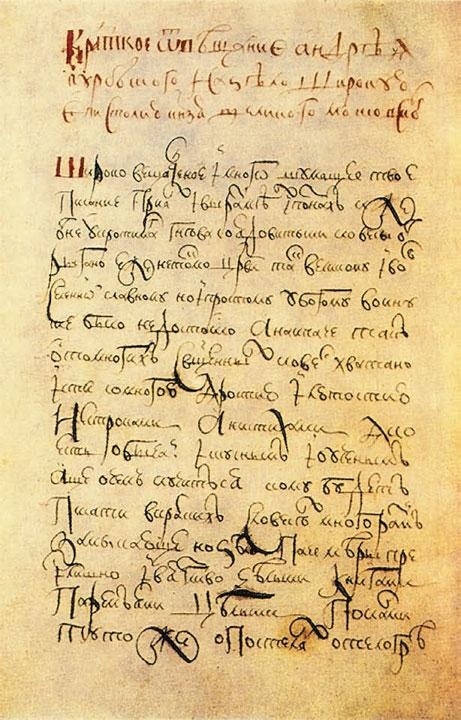 Краткое ѿвѣщание андрѣѧ
курбъского на зѣло широкую
епистолию кнзѧ великого московъ
Широковещателное и многошумящее твое
писание приях и выразумѣх и познахъ иже ѿ
неукротимаго гнѣва со ядовитыми словесы ѿ
рыгано еже не токмо црви такъ великому и во
вселенней славному но и простому убогому воину
сие было недостоино а наипаче такъ
ото многихъ священныхъ словес хватано
и те со многою яростию и лютостию
ни строками а ни стихами яко
есть обычаи искуснымъ и ученымъ
аще о чемъ случитъся кому будетъ
писати в кратъкихъ словесехъ многои разумъ
замыкающе но зѣло паче мѣры пре
излишно и звягливо цѣлыми книгами
паремьями цѣлыми посланми
туто же о постеляхъ о телогрѣ